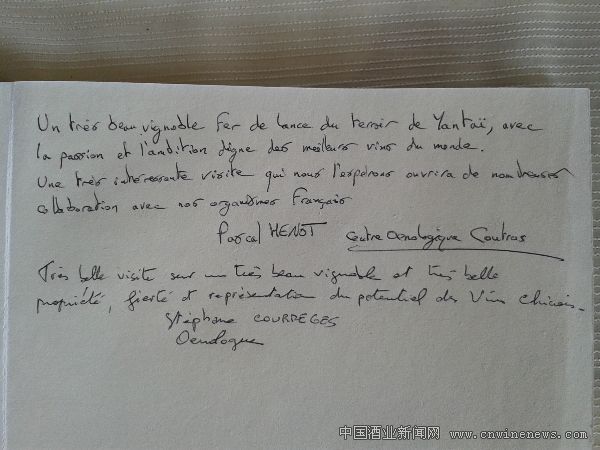 Un très beau vignoble Fer de lance du terroir de Yantaï, avec
la passion et l'ambition digne des meilleurs vins du monde.
Une très intéressante visite qui nous l'espérons ouvrira de nombreuses
collaboration avec nos organismes Français
Pascal HENOT Centre Oenologique Coutras
Très belle visite sur un très beau vignoble et très belle
propriété, fierté et représentation du potentiel des Vins Chinois.
Stéphane COURREGES
Oenologue
中国酒业新闻网 www.cnwinenews.com